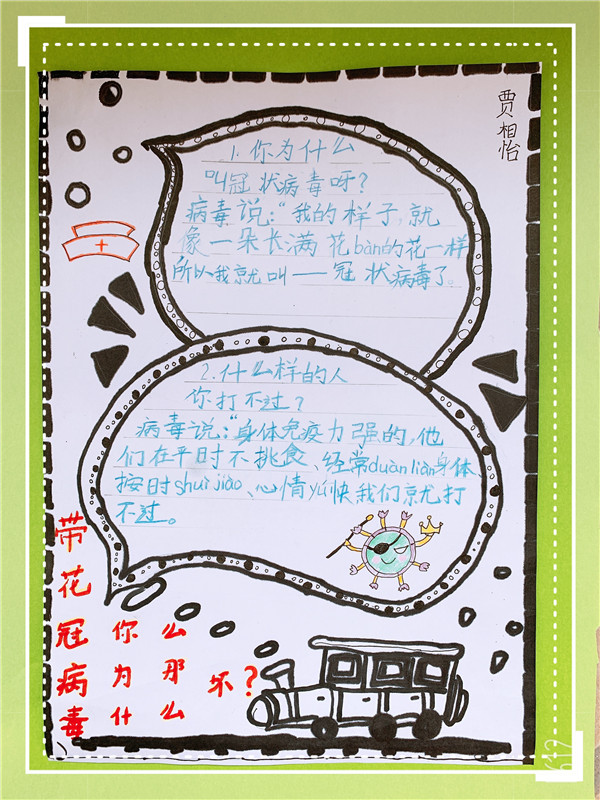 贾相怡
1.你为什么
叫冠状病毒呀?
病毒说:“我的样子,就
像一朵长满花bàn的花一样
所以我就叫——冠状病毒了。
2.什么样的人
你打不过?
病毒说:“身体免疫力强的,他
们在平时不挑食、经常duànliàn身体、
按时shuìjiào、心情yú快,我们就打
不过。
带花冠病毒
你为什
么那么
坏?